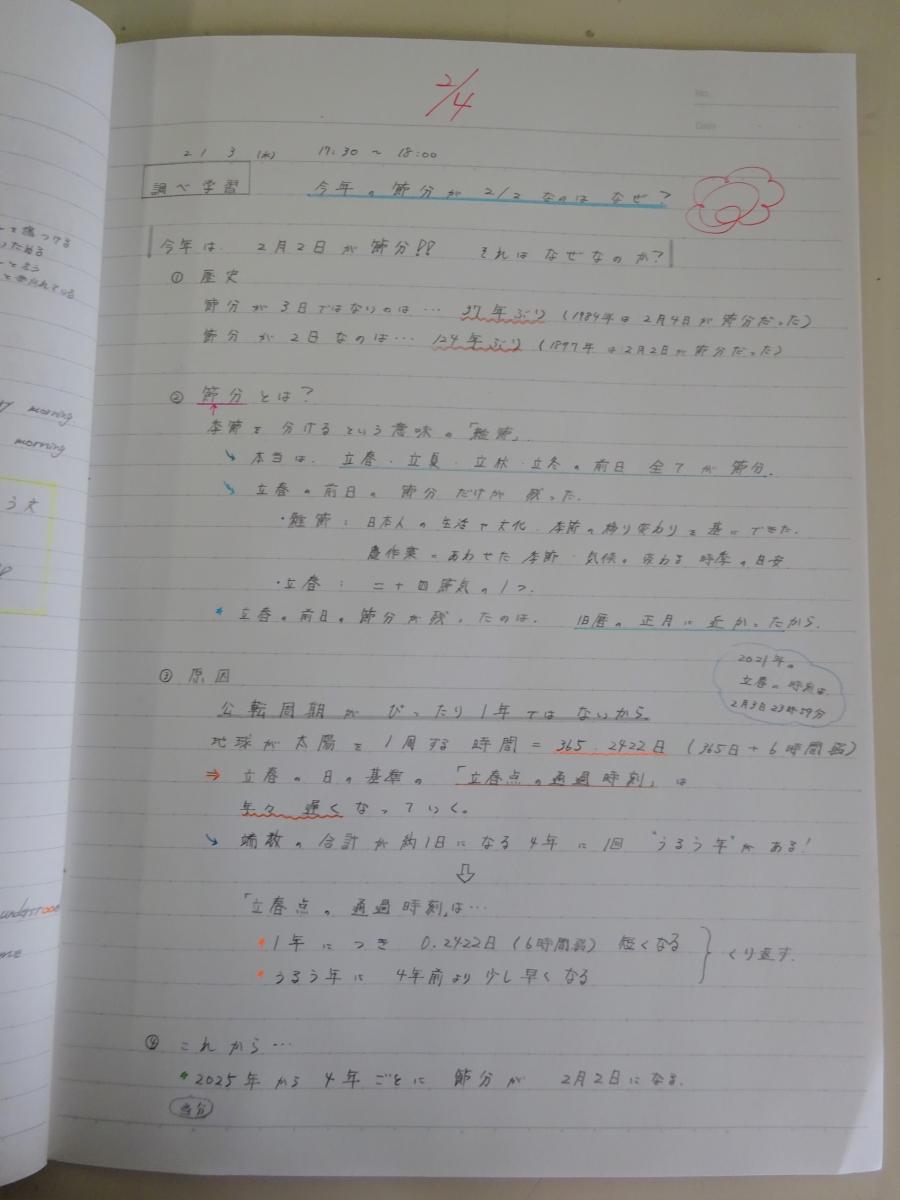 2/4
No.
Date
2 1 3 (水) 17:30 ~ 18:00
調べ学習 今年の節分が 2/2 なのは なぜ?
今年は、2月2日が節分!! それは なぜなのか?
① 歴史
節分が 3日ではないのは… 37年ぶり (1984年は2月4日が節分だった)
節分が 2日なのは… 124年ぶり (1897年は2月2日が節分だった)
② 節分とは?
季節を分けるという意味の「雑節」
↘ 本当は、立春・立夏・立秋・立冬の前日 全てが節分.
↘ 立春の前日の 節分だけが 残った.
・雑節: 日本人の生活や文化・季節の移り変わりを基にできた.
農作業にあわせた 季節・気候の変わる 時季の目安
・立春: 二十四節気の1つ.
* 立春の前日の節分が残ったのは、旧暦の正月に近かったから.
2021年の
立春の時刻は
2月3日23時59分
③ 原因
公転周期が ぴったり1年ではないから
地球が太陽を1周する時間 = 365.2422日 (365日+6時間弱)
⇒ 立春の日の基準の「立春点の通過時刻」は
年々 遅くなっていく。
↘ 端数の合計が約1日になる4年に1回 "うるう年"がある!
⇩
「立春点の通過時刻」は…
・1年につき 0.2422日 (6時間弱) 短くなる
・うるう年に 4年前より少し早くなる
} くり返す.
④ これから…
* 2025年から 4年ごとに 節分が 2月2日になる.
当分
う文
morning.
morning
understood
me